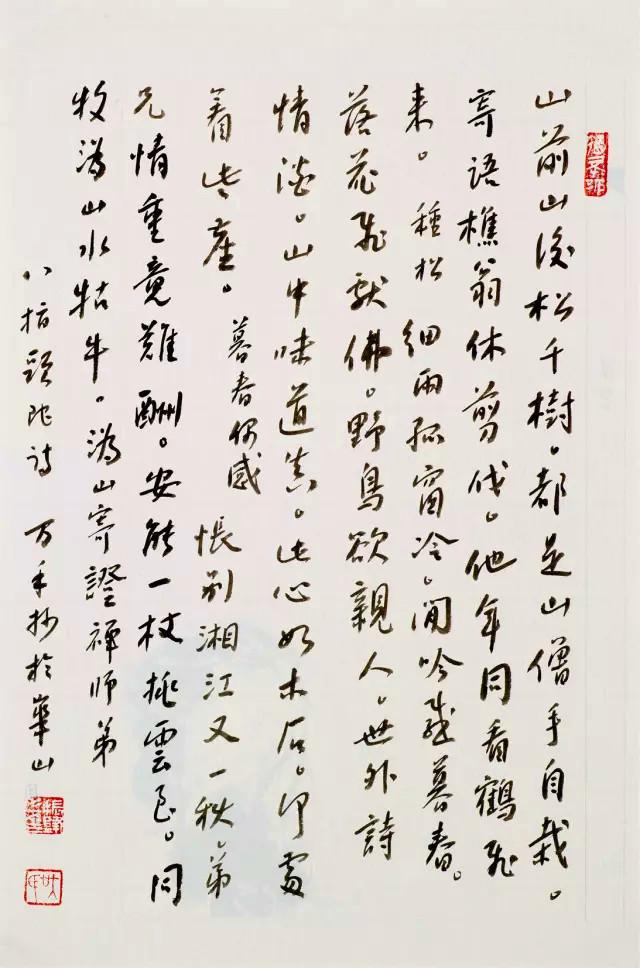 山前山後松千樹。都是山僧手自栽。
寄語樵翁休剪伐。他年同看鶴飛
来。種松 細雨孤窗冷。閒吟感暮春。
落花飛獻佛。野鳥欲親人。世外詩
情澹。山中味道真。此心如木石。何處
着此塵。暮春偶感 悵別湘江又一秋。弟
兄情重竟難酬。安能一杖挑雲去。同
牧溈山水牯牛。溈山寄證禪師弟
八指頭陀詩 万手抄於華山